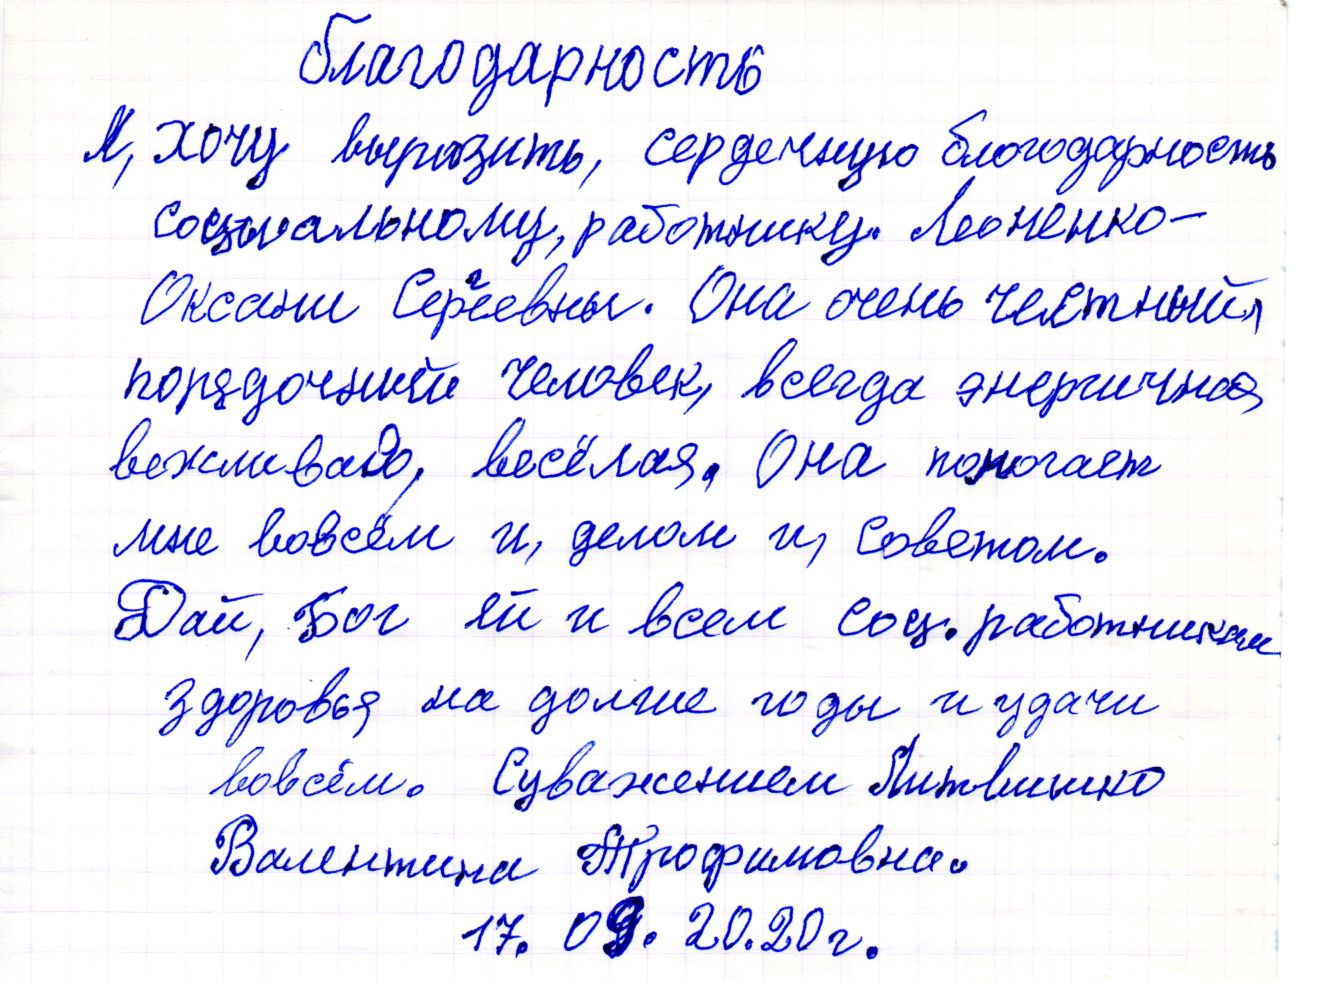 благодарность
Я, хочу выразить, сердечную благодарность
социальному, работнику. Леоненко-
Оксани Сергеевны. Она очень честный,
порядочний человек, всегда энергичная
вежливаю, весёлая. Она помогает
мне вовсём и, делом и, советом.
Дай, Бог ей и всем соц. работникам
здоровья на долгие годы и удачи
вовсём. Суважением Литвишко
Валентина Трофимовна.
17. 09. 20.20г.